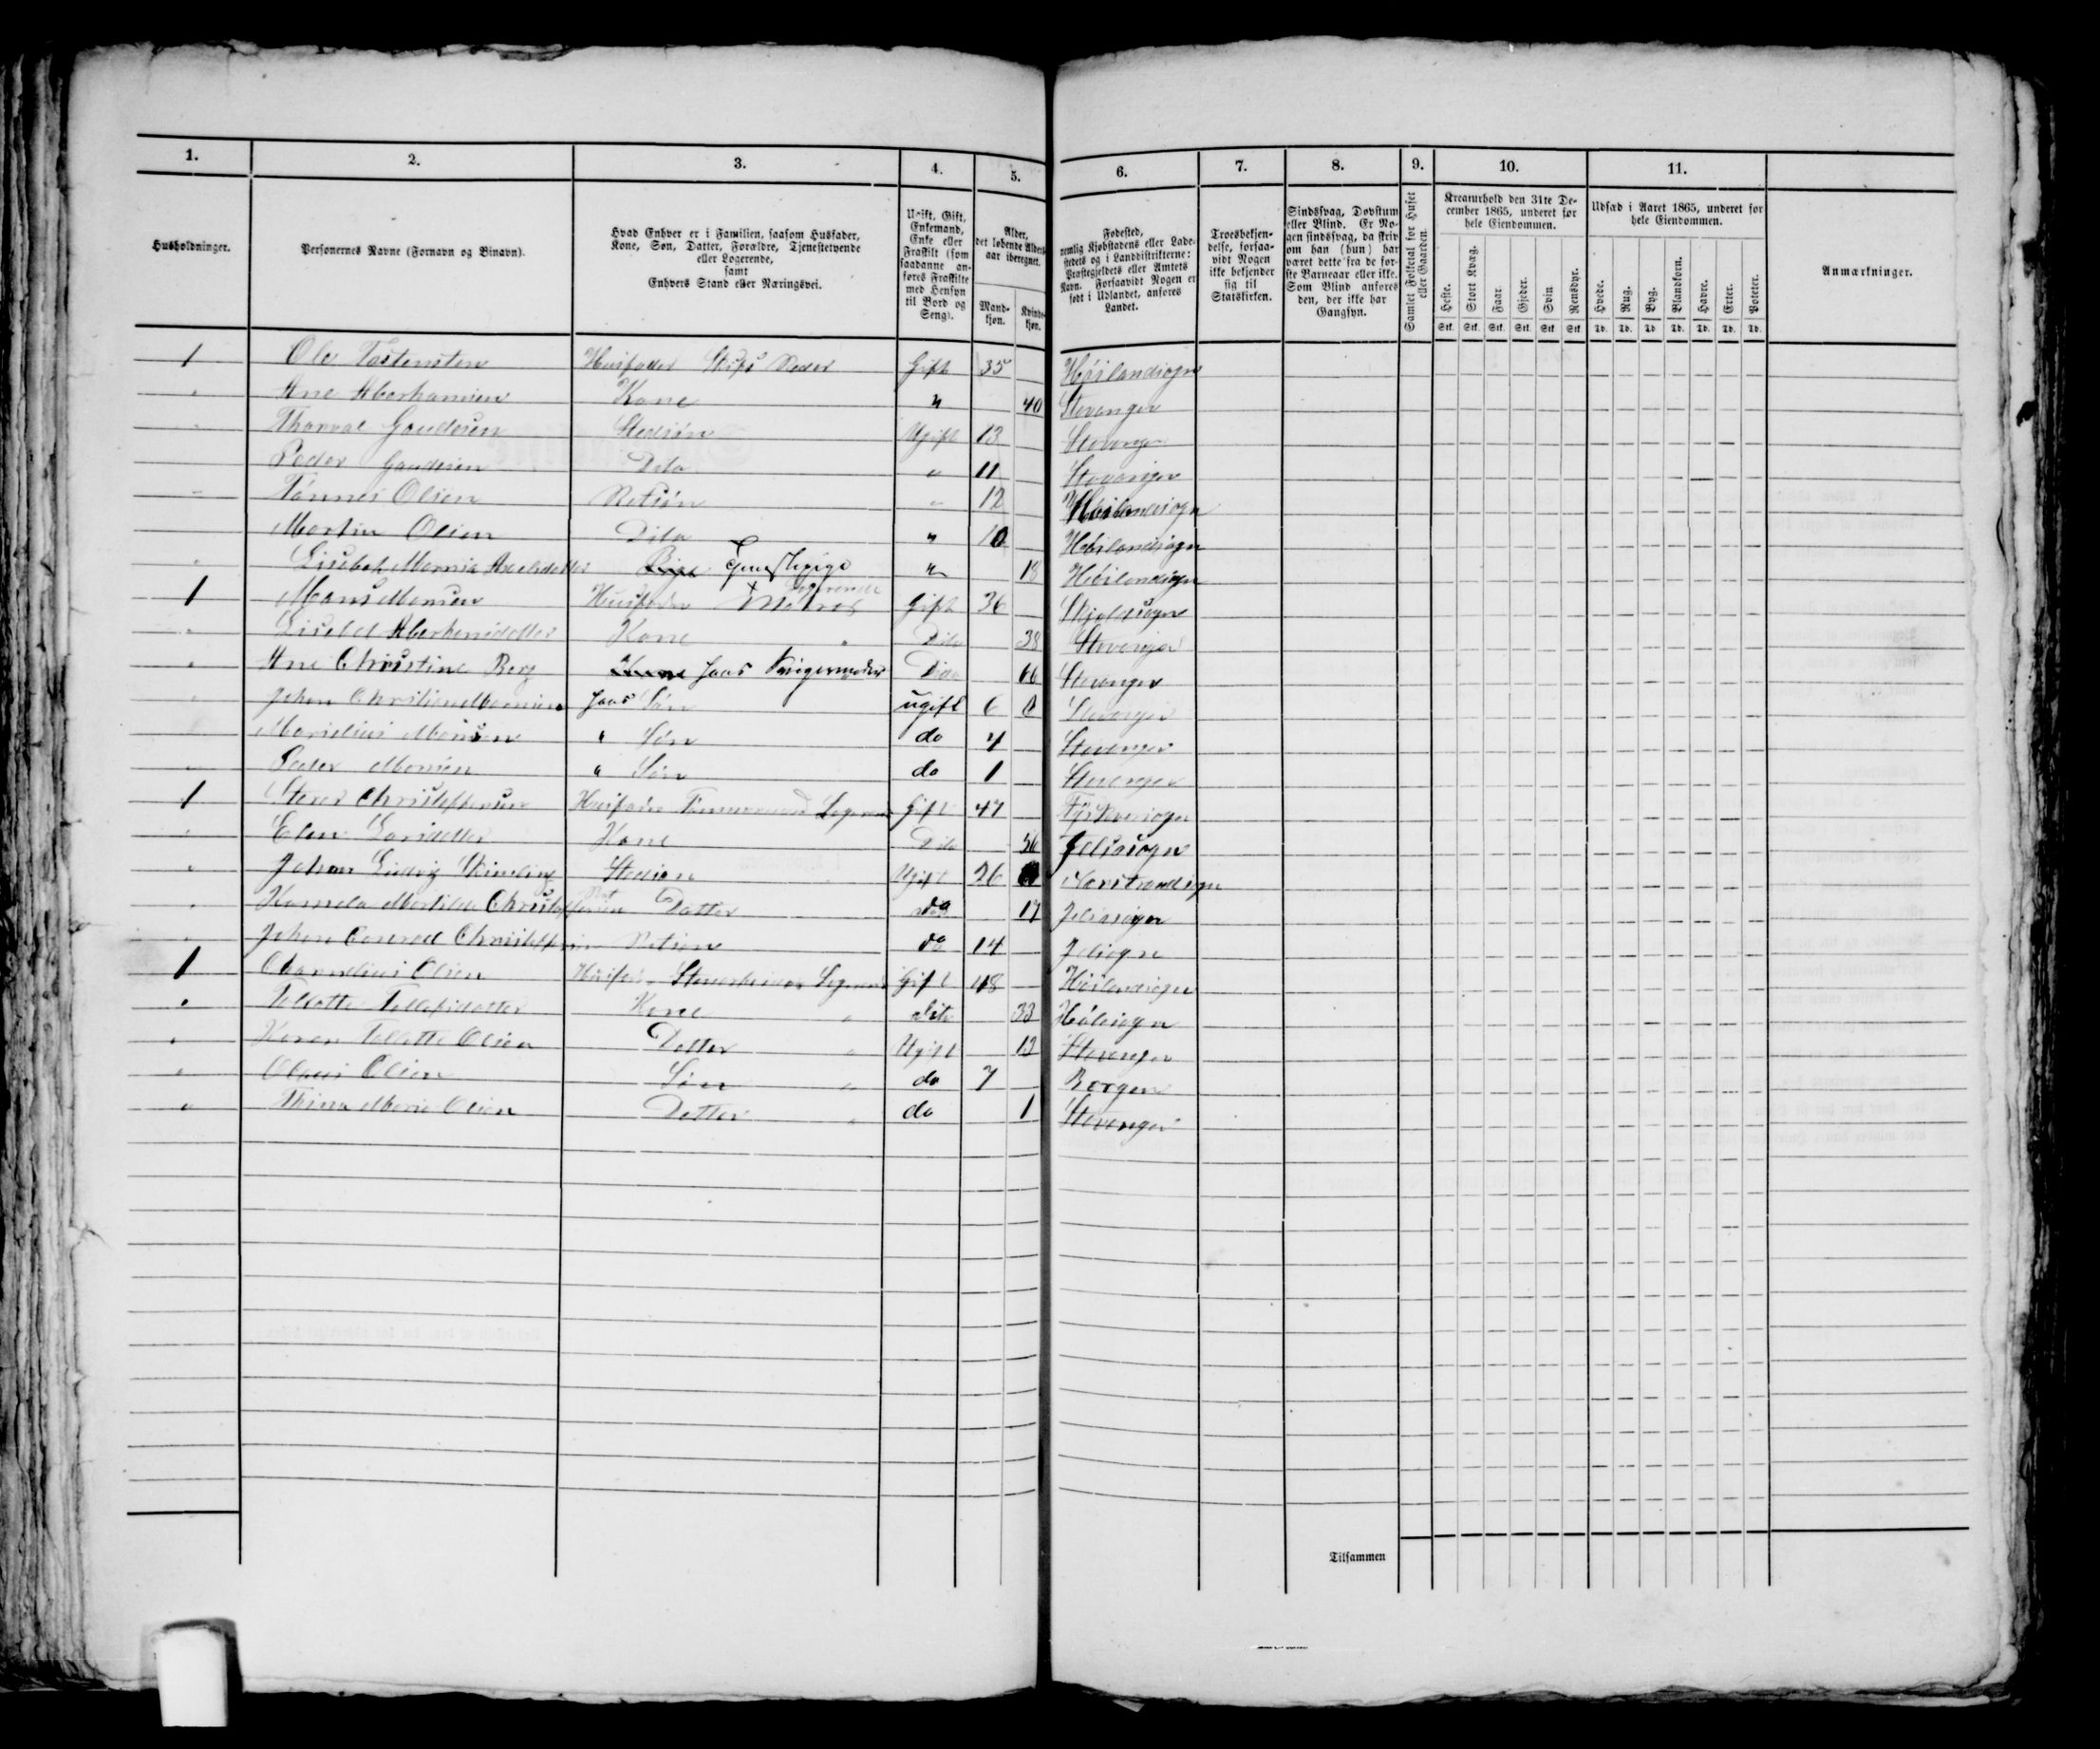 1. 2. 3. 4. 5. 6. 7. 8. 9. 10. 11.
Husholdninger.
Personernes Navne (Fornavn og Binavn).
Hvad Enhver er i Familien, saasom Husfader,
Kone, Søn, Datter, Forældre, Tjenestetyende
eller Logerende,
samt
Enhvers Stand eller Næringsvei.
Ugift, Gift,
Enkemand,
Enke eller
Fraskilt (som
saadanne an-
føres Fraskilte
med Hensyn
til Bord og
Seng).
Alder,
det løbende Alders-
aar iberegnet.
Mand-
kjøn.
Kvinde-
kjøn.
Fødested,
nemlig Kjøbstadens eller Lade-
stedets og i Landdistrikterne:
Præstegjeldets eller Amtets
Navn. Forsaavidt Nogen er
født i Udlandet, anføres
Landet.
Troesbekjen-
delse, forsaa-
vidt Nogen
ikke bekjender
sig til
Statskirken.
Sindssvag, Døvstum
eller Blind. Er No-
gen sindssvag, da skriv
om han (hun) har
været dette fra de før-
ste Barneaar eller ikke.
Som Blind anføres
den, der ikke har
Gangsyn.
Gamlet Folketal for Huset
eller Gaarden.
Kreaturhold den 31te De-
cember 1865, underet for
hele Eiendommen.
Heste. Stort Kvæg. Faar. Gjeder. Svin. Rensdyr.
Stk. Stk. Stk. Stk. Stk. Stk.
Udsæd i Aaret 1865, underet for
hele Eiendommen.
Hvede. Rug. Byg. Blandkorn. Havre. Erter. Poteter.
Td. Td. Td. Td. Td. Td. Td.
Anmærkninger.
1 Ole Tostensten Husfader Skibs Reder Gift 35 Høilandsogn
" Ane Aberhamsen Kone " 40 Stavanger
" Thorval Gaudesen Stedsøn Ugift 13 Stavanger
Peder Gaudesen Dito " 11 Stavanger
" Tønnes Olsen Retsøn " 12 Høilandsogn
Martin Olsen Dito " 10 Høilandsogn
" Lisebet Marnia Tjenestepige " 18 Høilandsogn
1 Mons Monsen Husfader Matros Logerende Gift 36 Skjoldsogn
" Lisebet Aberhamsdatter Kone " Dito 38 Stavanger
" Ane Christine Berg Kone hans Svigermoder Dito 66 Stavanger
" Johan Christian Monsen hans Søn ugift 6 Stavanger
Marselius Monsen " Søn do 4 Stavanger
" Peder Monsen " Søn do 1 Stavanger
1 Christophersen Husfader Tømmermand Logerende Gift 47
" Elen Larsdatter Kone Dito 56 Jelsasogn
" Johan Ludvig Stedsøn Ugift 26
" Kamela Martilde Christophersen Ret Datter do 17 Jelsasogn
" Johan Conrad Christophersen Retsøn do 14 Jelsogn
1 Olsen Husfader Logerende Gift 48 Høilandsogn
" Tollefsdatter Kone " Dito 33 Hølesogn
" Karen Olsen Datter " Ugift 13 Stavanger
" Olaus Olsen Søn " do 7 Bergen
" Marie Olsen Datter " do 1 Stavanger
Tilsammen